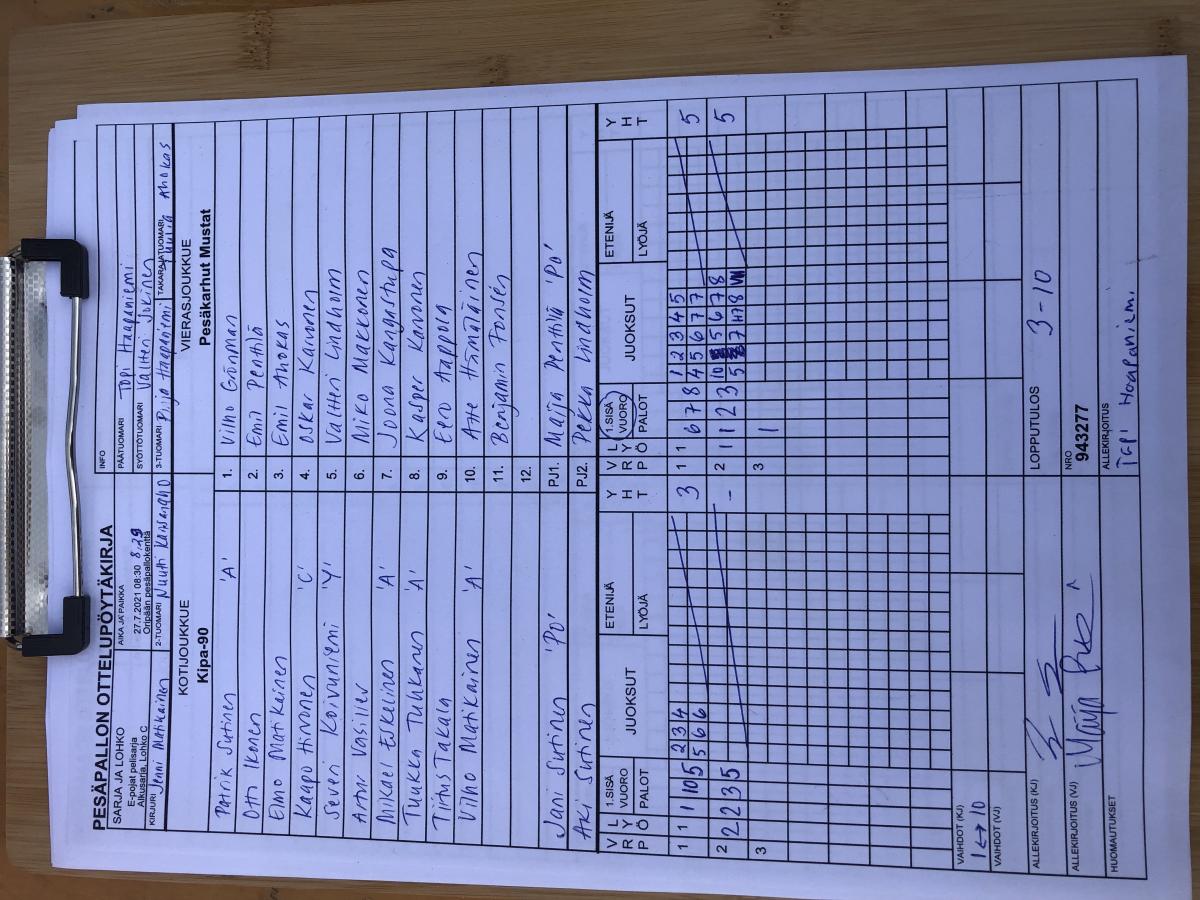 PESÄPALLON OTTELUPÖYTÄKIRJA
SARJA JA LOHKO
E-pojat pelisarja
Alkusarja, Lohko C
AIKA JA PAIKKA
27.7.2021 08:30 8.29
Oripään pesäpallokenttä
INFO
PÄÄTUOMARI Topi Haapaniemi
SYÖTTÖTUOMARI Valtteri Jokinen
KIRJURI Jenni Matikainen
2-TUOMARI Nuutti
3-TUOMARI Pirjo Haapaniemi
TAKARAJATUOMARI Ahokas
KOTIJOUKKUE
Kipa-90
VIERASJOUKKUE
Pesäkarhut Mustat
Patrik Sutinen 'A' 1. Vilho Grönman
Otto Ikonen 2. Emil Penttilä
Elmo Matikainen 3. Emil Ahokas
Kaapo Hirvonen 'C' 4. Oskar Karvonen
Severi Koivuniemi 'Y' 5. Valtteri Lindholm
6. Niko Makkonen
Mikael Eskelinen 'A' 7. Joona Kaagastupa
Tuukka Tuhkanen 'A' 8. Kasper Karvonen
Titus Takala 9. Eero Aappola
Vilho Matikainen 'A' 10. Atte Hämäläinen
11. Benjamin Forsén
12.
Jani Sutinen 'PO' PJ1. Marja Penttilä 'PO'
Aki Sutinen PJ2. Pekka Lindholm
V R P L Y Ö 1.SISÄ VUORO PALOT JUOKSUT ETENIJÄ LYÖJÄ Y H T
V R P L Y Ö 1.SISÄ VUORO PALOT JUOKSUT ETENIJÄ LYÖJÄ Y H T
1 1 1 10 5 2 3 4 3
5 6 6
1 1 6 7 8 1 2 3 4 5 5
4 5 6 7 7
2 2 2 3 5 -
2 1 1 2 3 10 5 6 7 8 5
3
3 1
VAIHDOT (KJ) 1 ↔ 10
VAIHDOT (VJ)
LOPPUTULOS 3-10
ALLEKIRJOITUS (KJ)
ALLEKIRJOITUS (VJ)
NRO
943277
HUOMAUTUKSET
ALLEKIRJOITUS
Topi Haapaniemi